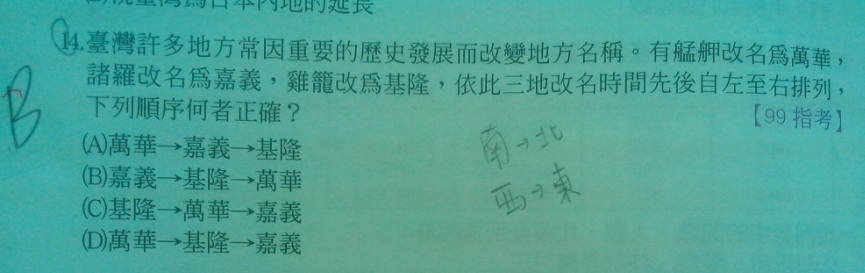 為日本內地的延長
14.臺灣許多地方常因重要的歷史發展而改變地方名稱。有艋舺改名為萬華，
諸羅改名為嘉義，雞籠改為基隆，依此三地改名時間先後自左至右排列，
下列順序何者正確？【99 指考】
B
(A)萬華→嘉義→基隆
(B)嘉義→基隆→萬華
(C)基隆→萬華→嘉義
(D)萬華→基隆→嘉義
南→北
西→東